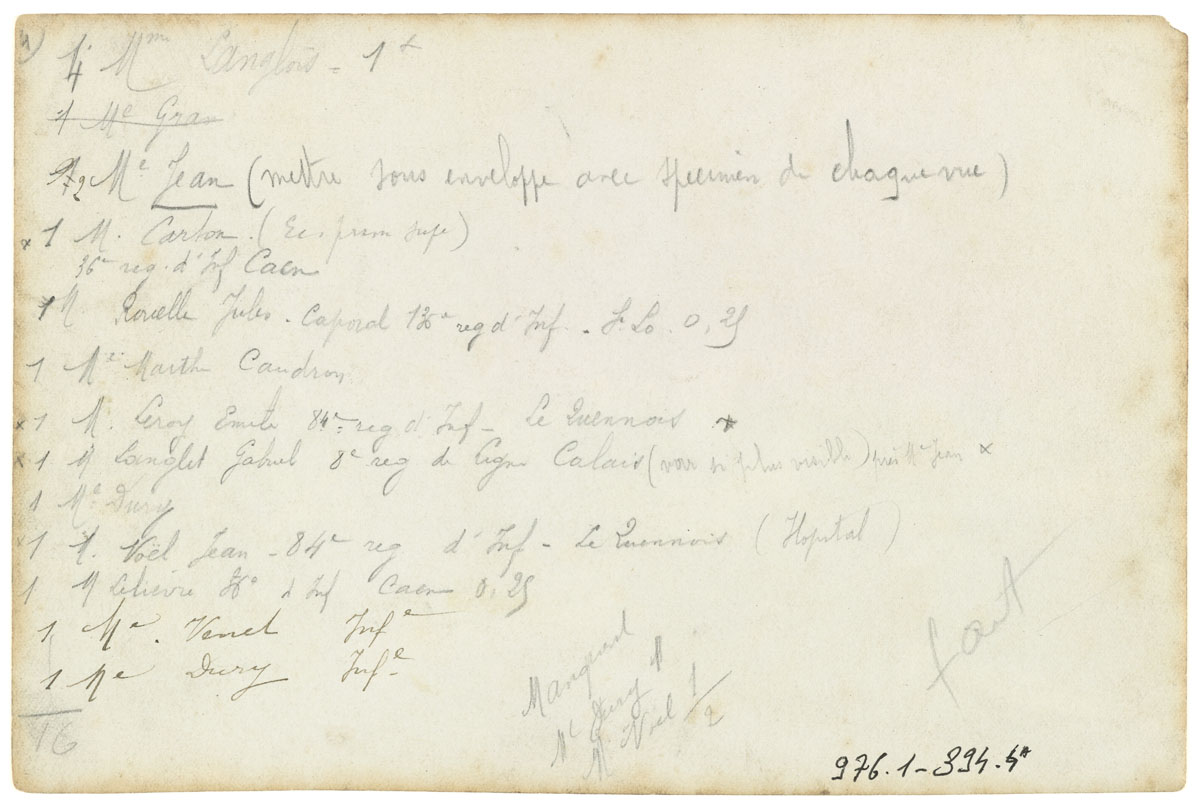 4 Mme Langlois - 1 x
1 Me Gra
2 Me Jean (mettre sous enveloppe avec specimen de chaque vue)
x 1 M. Carton (
36e reg. d'Inf Caen
1 M Rouelle Jules - Caporal 136e reg d'Inf - St Lo. 0,25
1 Me Marthe Caudron
x 1 M. Leroy Emile 84e reg d'Inf - Le Quennois x
x 1 M Langlet Gabriel 8e reg de ligne Calais (voir si plus visible) près Me Jean x
1 Me Dury
x 1 M. Noël Jean - 84e reg d'Inf - Le Quennois (Hopital)
1 M Lelievre 36e d'Inf Caen 0,25
1 Me. Venet Infe
1 Me Dury Infe
16
Manquent
Me Dury 1
M Noël 1
2
fait
976.1-394.4A